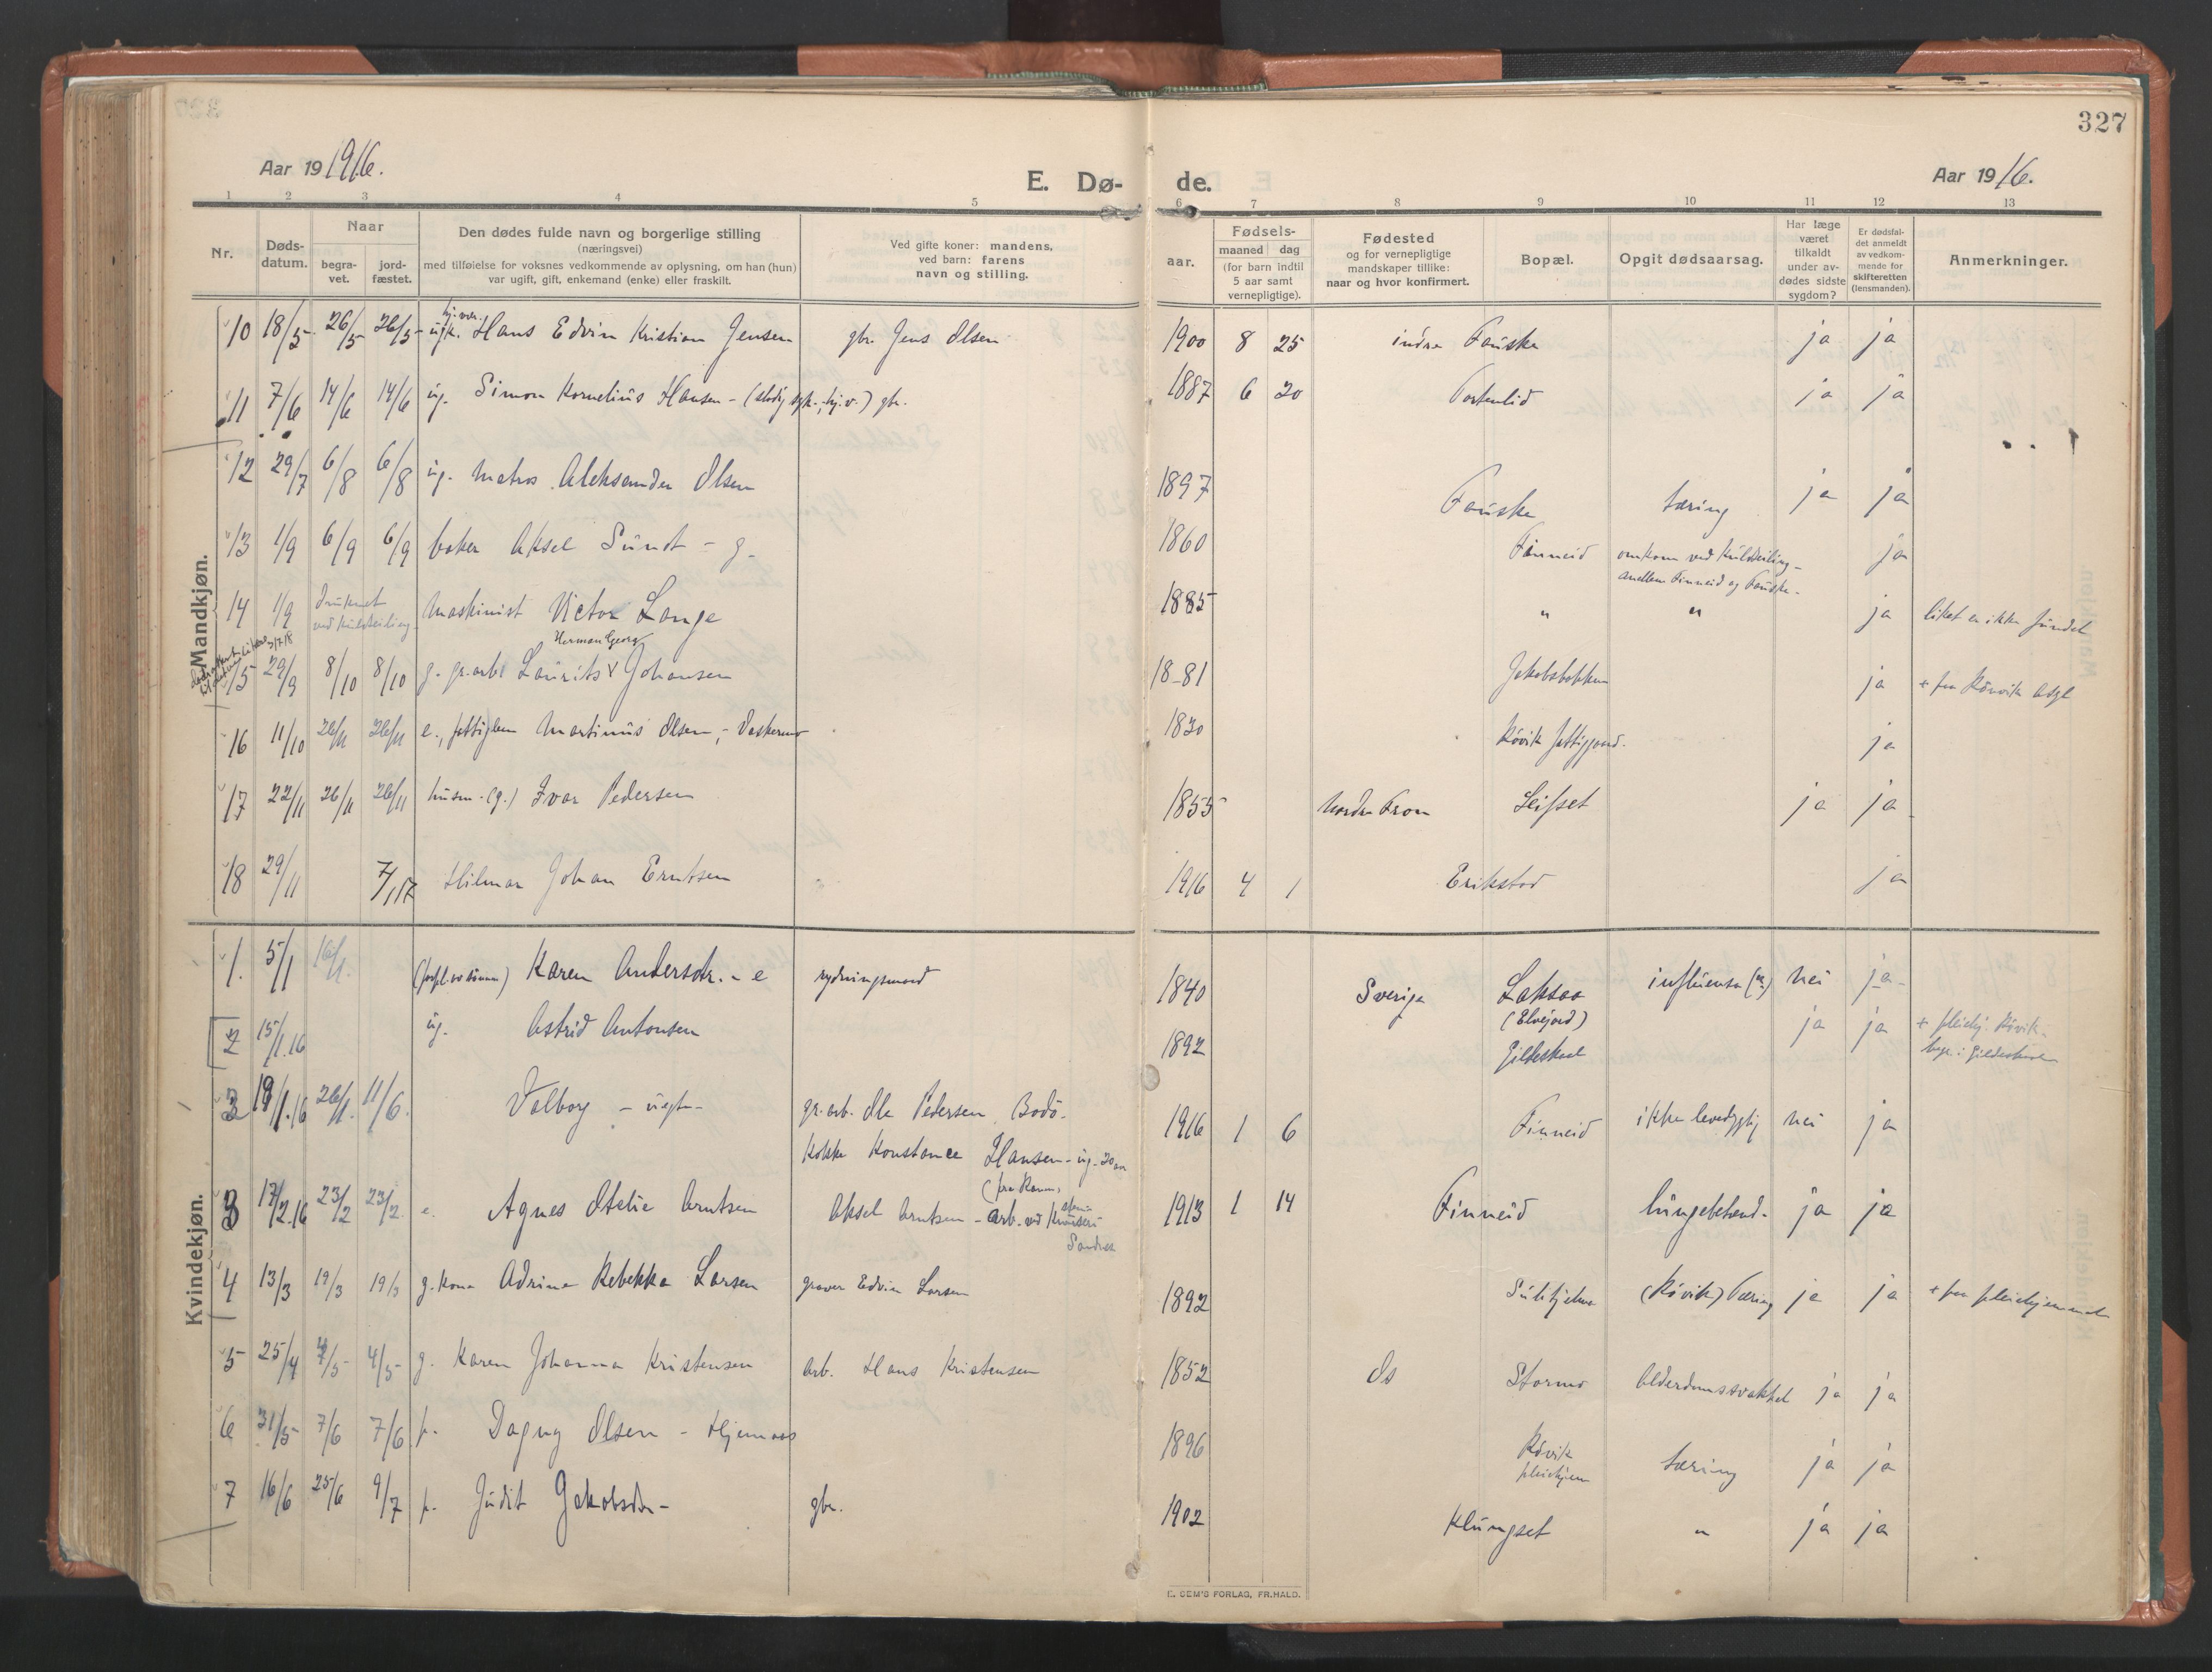 327
Aar 19 1916.
E. Dø- de.
Aar 19 16.
1 2 3 4 5 6 7 8 9 10 11 12 13
Nr.
Døds-
datum.
Naar
begra-
vet.
jord-
fæstet.
Den dødes fulde navn og borgerlige stilling
(næringsvei)
med tilføielse for voksnes vedkommende av oplysning, om han (hun)
var ugift, gift, enkemand (enke) eller fraskilt.
Ved gifte koner: mandens,
ved barn: farens
navn og stilling.
Fødsels-
aar.
maaned dag
(for barn indtil
5 aar samt
vernepligtige).
Fødested
og for vernepligtige
mandskaper tillike:
naar og hvor konfirmert.
Bopæl.
Opgit dødsaarsag.
Har læge
været
tilkaldt
under av-
dødes sidste
sygdom?
Er dødsfal-
det anmeldt
av vedkom-
mende for
skifteretten
(lensmanden).
Anmerkninger.
Mandkjøn.
10 18/5 26/5 26/5 ugk. Hans Edvin Kristian Jensen gbr. Jens Olsen 1900 8 25 indre Fauske ja ja
11 7/6 14/6 14/6 ug. Simon Kornelius Hansen - gbr. 1887 6 20 ja ja
12 29/7 6/8 6/8 ug. matros Aleksander Olsen 1897 Fauske tæring ja ja
13 1/9 6/9 6/9 baker Aksel Sundt - g. 1860 Finneid omkom ved kulseiling ja
mellem Finneid og Fauske.
14 1/9 druknet ved kulseiling Maskinist Victor Lange 1885 " " ja liket er ikke fundet
Herman Georg
15 29/9 8/10 8/10 g. gr.arb. Laurits Johansen 18-81 Jakobsbakken ja + paa Røvik
16 11/10 26/11 26/11 e., fattiglem Martinus Olsen, 1830 Røvik fattiggaard. ja
17 22/11 26/11 26/11 husm. (g.) Ivar Pedersen 1855 Nordre Fron Leifset ja ja
18 29/11 7/1 17 Hilmar Johan Erntsen 1916 4 1 Erikstad ja
Kvindekjøn.
1. 5/1 16/1. Karen Andersdtr. - e rydningsmand 1840 Sverige Laksaa influensa nei ja
(Elvejord)
2 15/1.16 ug. Astrid Antonsen 1892 Gildeskaal ja ja + pleiehj. Røvik.
begr. i Gildeskaal
3 19/1.16 26/1. 11/6. Valborg - uegte - gr.arb. Ole Pedersen Bodø. 1916 1 6 Finneid ikke levedygtig nei ja
Kokke Konstance Hansen - ug. 20 aar
3 17/2.16 23/2 23/2. e. Agnes Otelie Arntsen Aksel Arntsen - arb. ved 1913 1 14 Finneid lungebetænd. ja ja
Sandnes
4 13/3 19/3 19/3 g. kona Adrine Rebekka Larsen graver Edvin Larsen 1892 Sulitjelma (Røvik) Tæring ja ja + paa pleiehjemmet
5 25/4 4/5 4/5 g. Karen Johanna Kristensen arb. Hans Kristensen 1852 Os Stormo Alderdomssvakhet ja ja
6 31/5 7/6 7/6 p. Dagny Olsen - Hjemaas 1896 Røvik tæring ja ja
pleiehjem
7 16/6 25/6 9/7 p. Judit Jakobsdtr. - gbr. 1902 Klungset " ja ja
E. SEM'S FORLAG, FR.HALD.